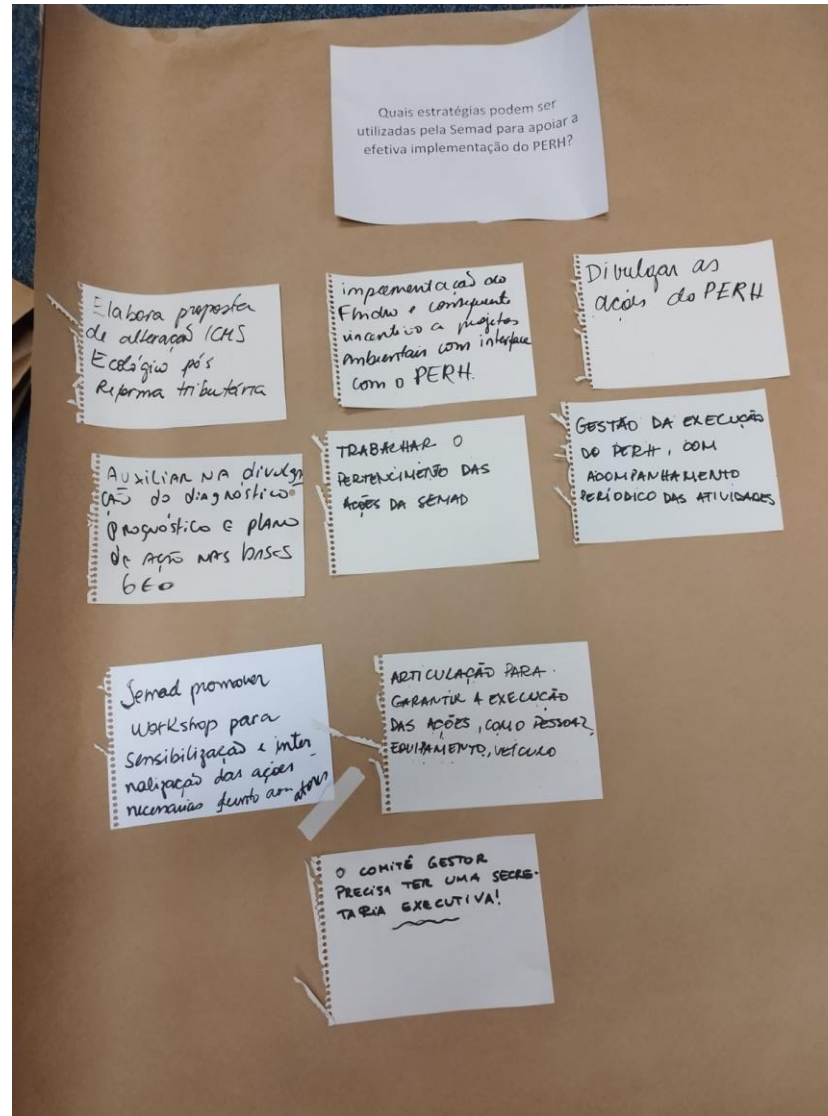 Quais estratégias podem ser
utilizadas pela Semad para apoiar a
efetiva implementação do PERH?
Elabora proposta
de alteração ICMS
Ecológico pós
Reforma tributária
impementação do
Fhidro e consequente
incentivo a projetos
ambientais com interface
com o PERH.
Divulgar as
ações do PERH
AUXILIAR NA divulga
ção do diagnóstico
prognóstico e plano
de AÇÃO NAS bases
GEO
TRABALHAR O
PERTENCIMENTO DAS
AÇÕES DA SEMAD
GESTÃO DA EXECUÇÃO
DO PERH, COM
ACOMPANHAMENTO
PERÍODICO DAS ATIVIDADES
Semad promover
workshop para
sensibilização e inter
nalização das ações
necessárias junto aos atores
ARTICULAÇÃO PARA
GARANTIR A EXECUÇÃO
DAS AÇÕES, COMO PESSOAL,
EQUIPAMENTO, VEÍCULO
O COMITÊ GESTOR
PRECISA TER UMA SECRE-
TARIA EXECUTIVA!